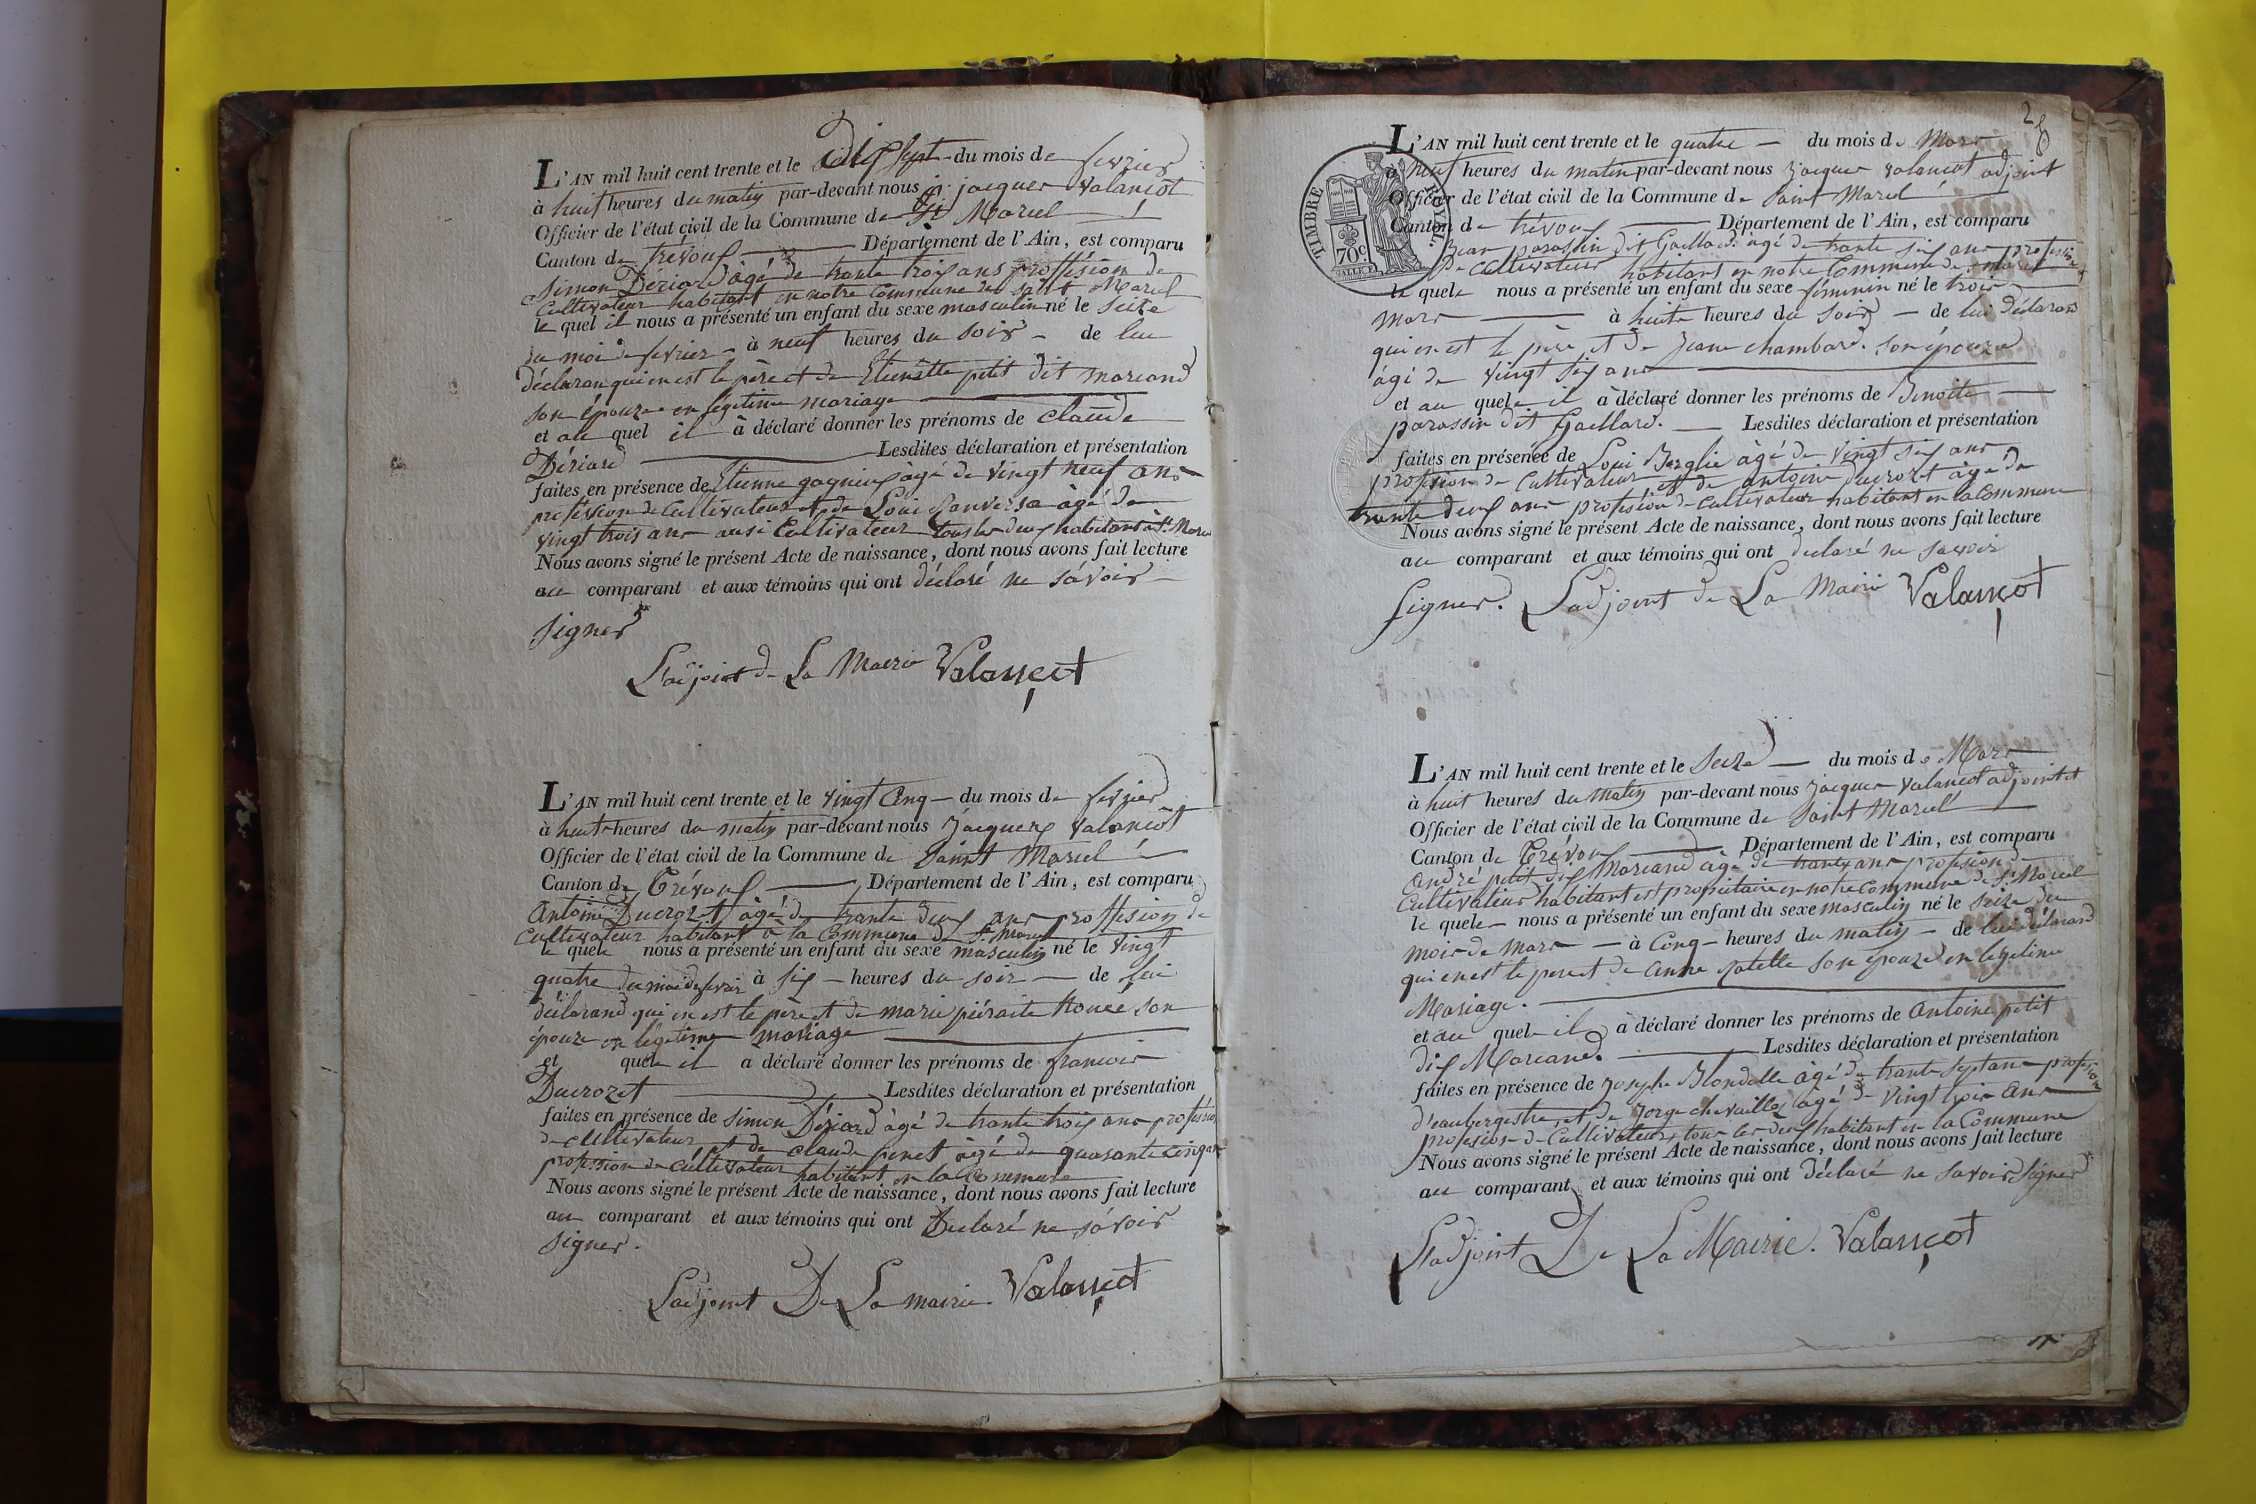 L'AN mil huit cent trente et le dix sept du mois de fevrier
à huit heures du matin par-devant nous jacques Valançot
Officier de l'état civil de la Commune de St Marcel
Canton de trévoux Département de l'Ain, est comparu
Simon Dériard âgé de trante trois ans proffésion de
Cultivateur habitant en notre Commune de saint Marcel
le quel il nous a présenté un enfant du sexe masculin né le seize
du moi de fevrier à neuf heures du soir de lui
déclaran qui en est le père et de Etienette petit dit marcand
son épouze en légitime mariage
et au quel il à déclaré donner les prénoms de claude
Dériard Lesdites déclaration et présentation
faites en présence de Etienne gagnieux âgé de vingt neuf ans
profession de Cultivateur et de Loui âgé de
vingt trois ans ausi Cultivateur tous les deux habitant à St Marcel
Nous avons signé le présent Acte de naissance, dont nous avons fait lecture
au comparant et aux témoins qui ont déclaré ne sávoir
signer
L'adjoint de La Mairie Valançot
L'AN mil huit cent trente et le vingt Cinq du mois de fevrier
à huit heures du matin par-devant nous Jacques Valançot
Officier de l'état civil de la Commune de Saint Marcel
Canton de Trévoux Département de l'Ain, est comparu
Antoine Ducrozet âgé de trante deux ans proffésion de
Cultivateur habitant a la Commune de St Marcel
le quel nous a présenté un enfant du sexe masculin né le vingt
quatre du moi de fevrier à six heures du soir de lui
déclarand qui en est le père et de marie son
épouze en légitime mariage
et quel il a déclaré donner les prénoms de francois
Ducrozet Lesdites déclaration et présentation
faites en présence de simon Dériard âgé de trante trois ans profésion
de Cultivateur et de claude âgé de quarante cinq ans
profession de cultivateur habitant en la Commune
Nous avons signé le présent Acte de naissance, dont nous avons fait lecture
au comparant et aux témoins qui ont Declaré ne sávoir
signer.
L'adjoint De La mairie Valançot
2
L'AN mil huit cent trente et le quatre du mois de Mars
à neuf heures du matin par-devant nous Jacques Valançot adjoint
Officier de l'état civil de la Commune de Saint Marcel
Canton de trévoux Département de l'Ain, est comparu
Jean parassin dit Gaillard âgé de trante six ans profession
De Cultivateur habitant en notre Commune de St Marcel
le quel nous a présenté un enfant du sexe féminin né le trois
Mars à huite heures du soir de lui déclarand
qui en est le père et de Jeane chambard son épouze
agé de vingt six ans
et au quel il à déclaré donner les prénoms de Benoite
parassin dit Gaillard. Lesdites déclaration et présentation
faites en présence de Loui âgé de vingt six ans
profession de Cultivateur et de antoine Ducrozet âgé de
trante deux ans profésion de Cultivateur habitant en la Commune
Nous avons signé le présent Acte de naissance, dont nous avons fait lecture
au comparant et aux témoins qui ont déclaré ne savoir
signer. L'adjoint de La Mairie Valançot
TIMBRE ROYAL
70c
L'AN mil huit cent trente et le Seize du mois de Mars
à huit heures du matin par-devant nous Jacques Valançot adjoint et
Officier de l'état civil de la Commune de Saint Marcel
Canton de Trévoux Département de l'Ain, est comparu
André petit dit Marcand âgé de trante ans profésion
Cultivateur habitant et propriétaire en notre Commune de St Marcel
le quel nous a présenté un enfant du sexe masculin né le seize du
mois de Mars à Cinq heures du matin de lui déclarand
qui en est le pere et de anne son épouze en legitime
Mariage.
et au quel il à déclaré donner les prénoms de antoine petit
dit Marcand. Lesdites déclaration et présentation
faites en présence de Joseph Blondelle âgé de trante sept ans profession
d'eaubergestre et de Jorge âgé de vingt trois ans
profession de Cultivateur tous les deux habitant en la Commune
Nous avons signé le présent Acte de naissance, dont nous avons fait lecture
au comparant et aux témoins qui ont déclaré ne savoir signer
L'adjoint De La Mairie. Valançot